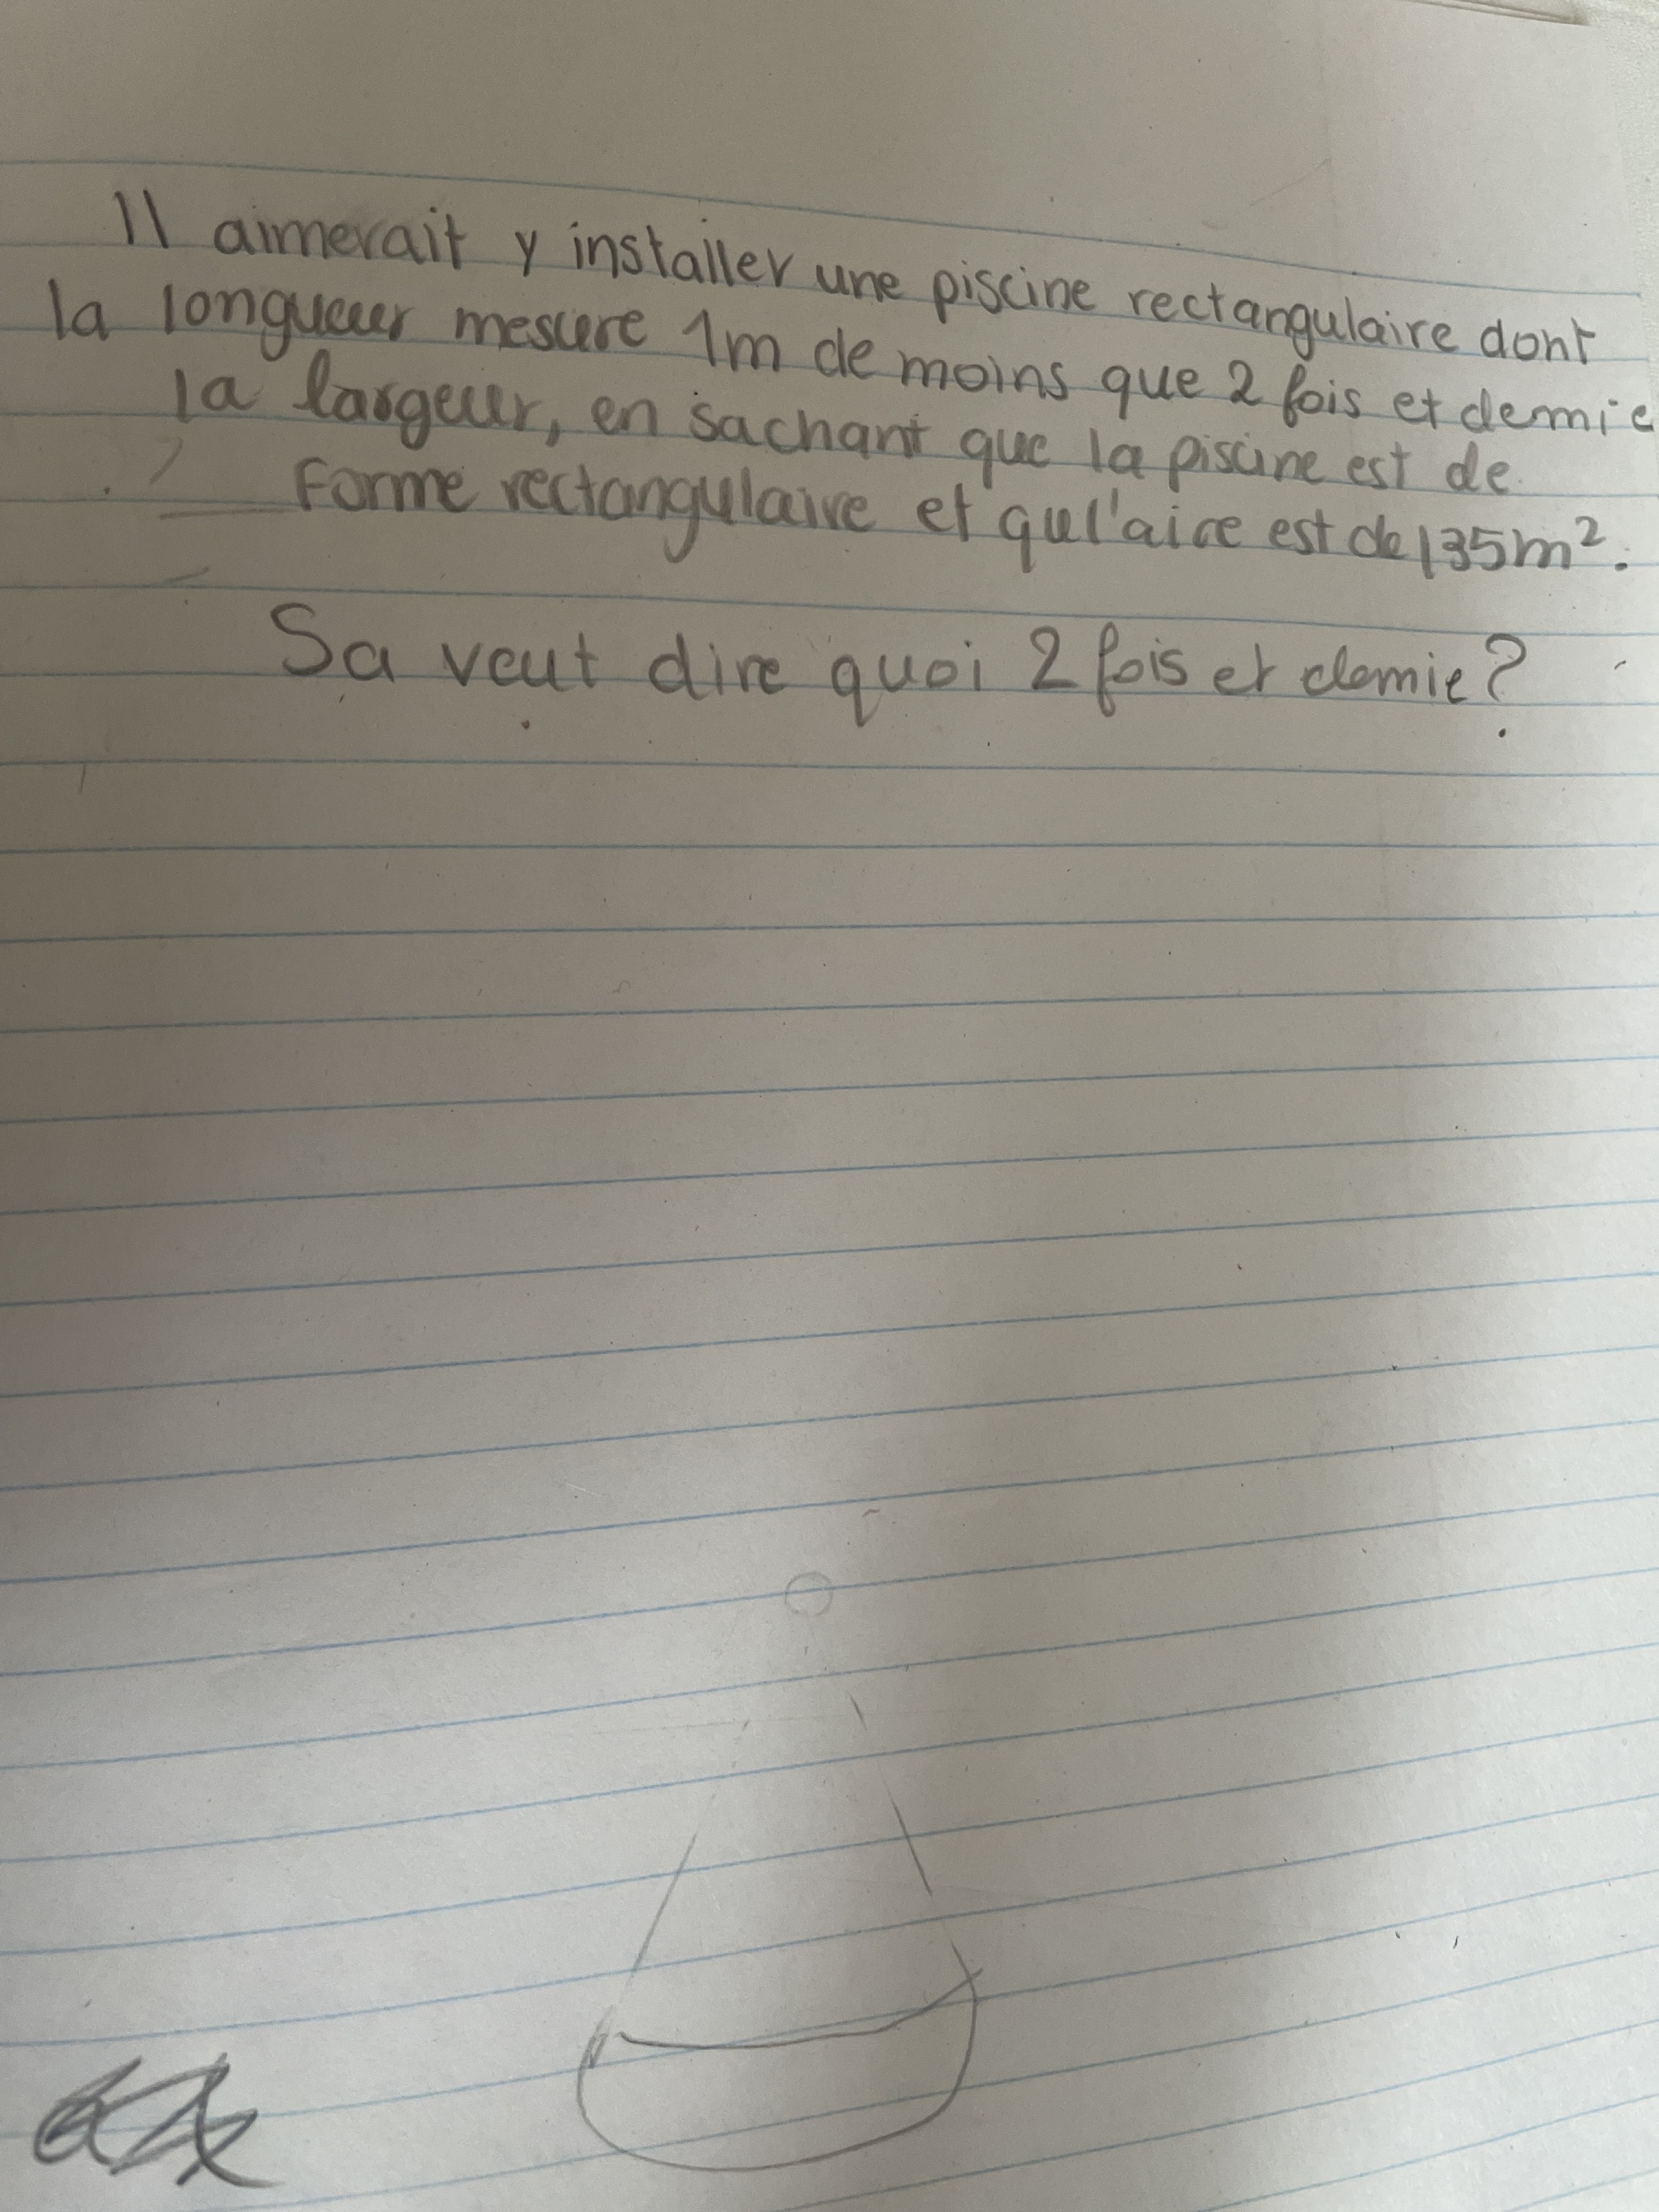 Il aimerait y installer une piscine rectangulaire dont
la longueur mesure 1m de moins que 2 fois et demie
la largeur, en sachant que la piscine est de
Forme rectangulaire et qu l'aire est de 135m².
Sa veut dire quoi 2 fois et demie?